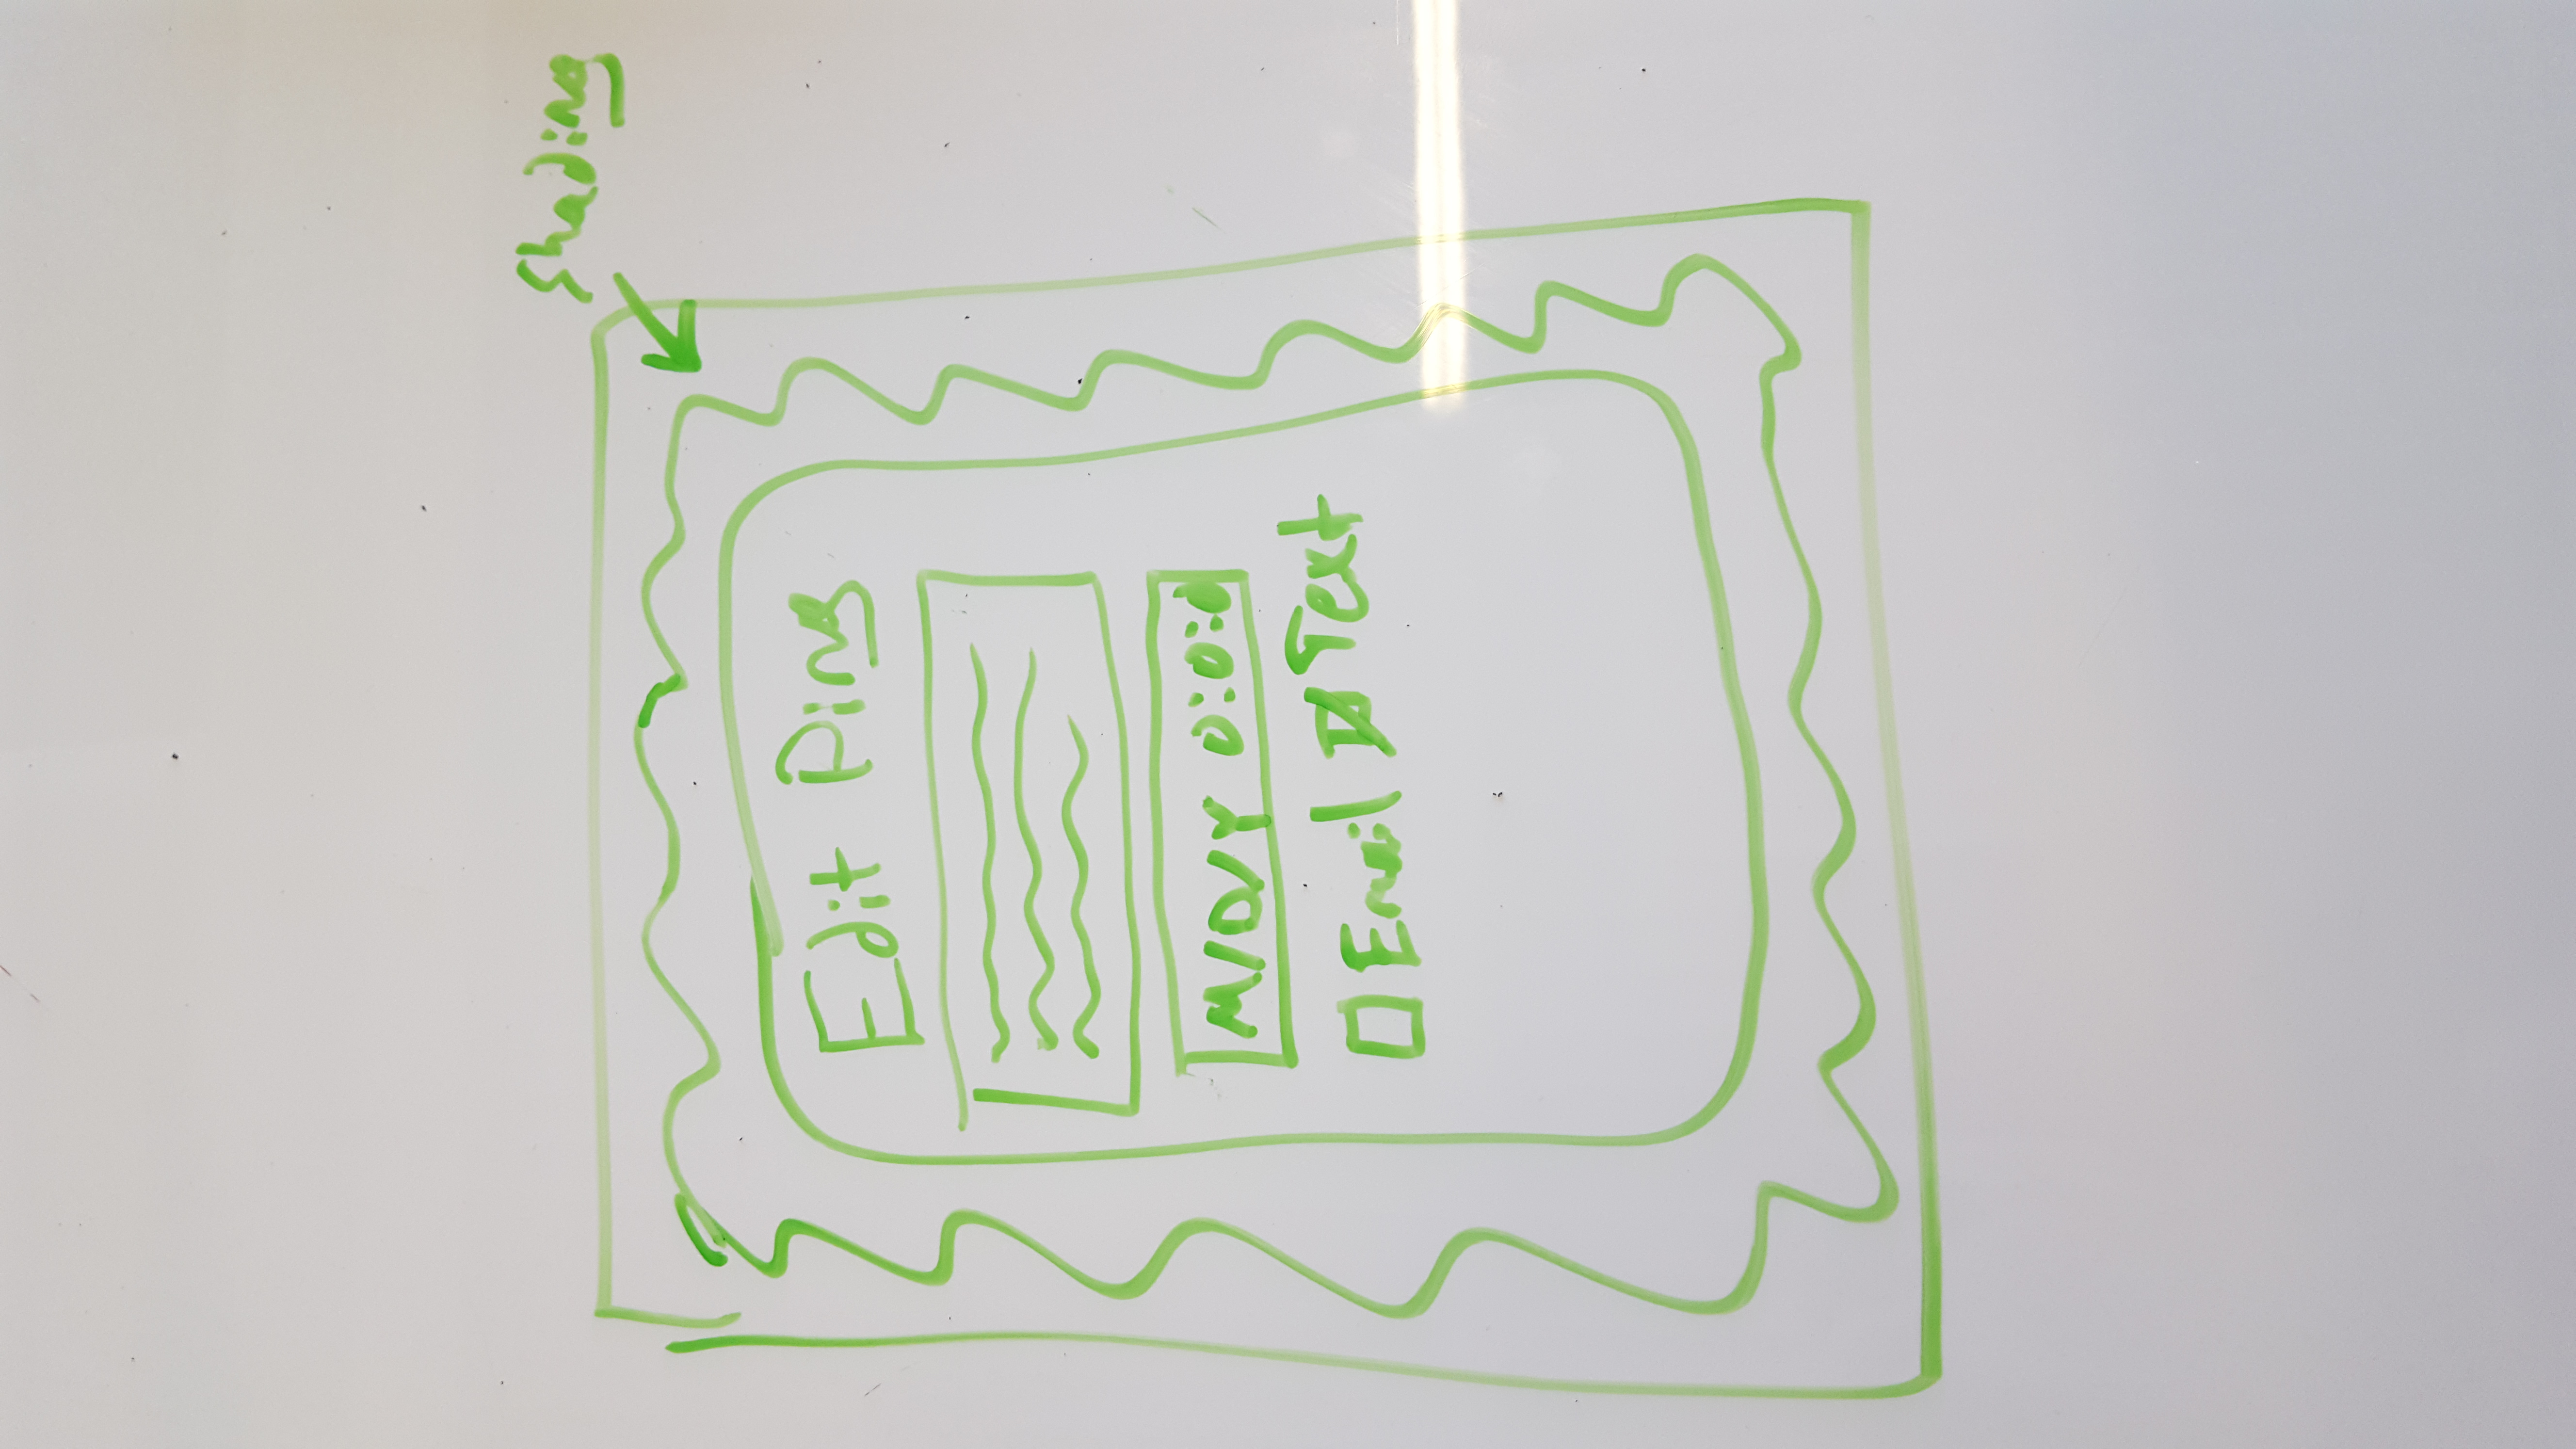 Shading
Edit Ping
M/D/Y 0:0:0
Email Text